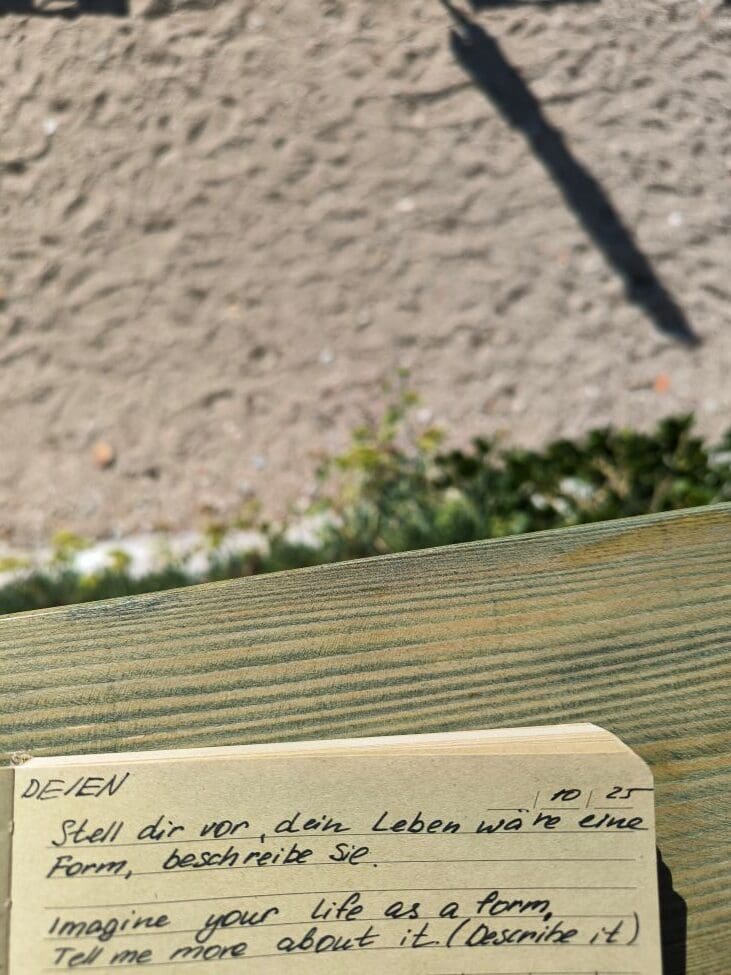 DE/EN
| 10 | 25
Stell dir vor, dein Leben wäre eine
Form, beschreibe sie.
Imagine your life as a form.
Tell me more about it. (Describe it)